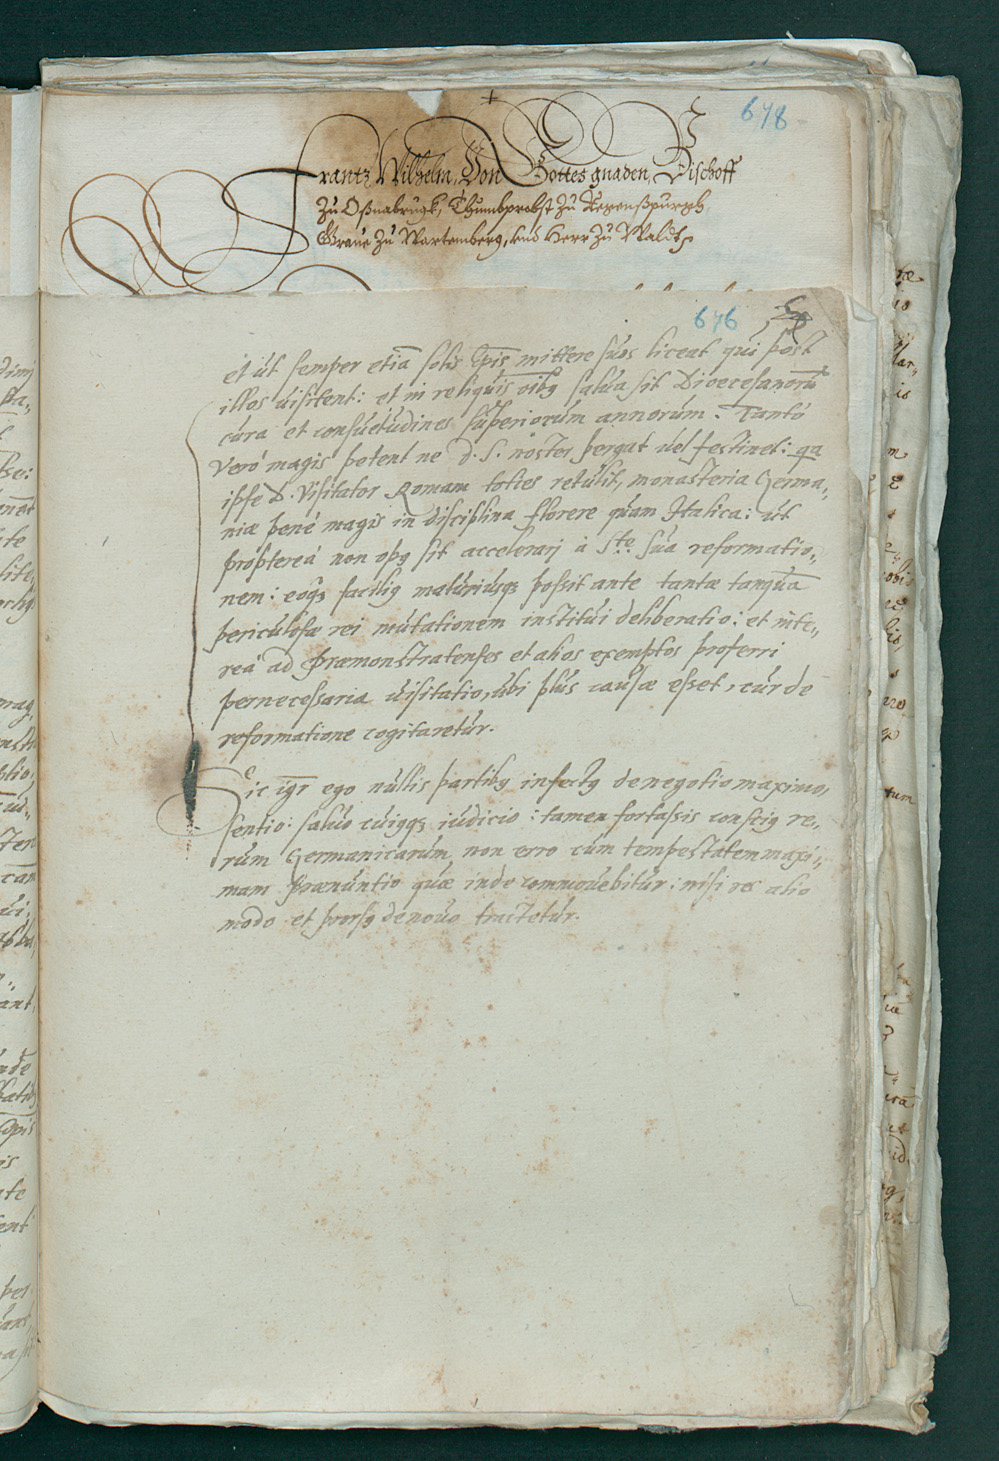 678
Frantz Wilhelm, Von Gottes gnaden, Bischoff
Zu Oßnabrugk, Thumbprobst zu Regenspurgh,
Graue zu Wartemberg, und Herr zu Waldt
676
et ut semper etiā solis Ep̄is mittere suos liceat qui post
illos uisitent: et in reliquis oībꝫ salua sit Dioecesanorū
cura et consuetudines superiorum annorum: Tantò
verò magis petent ne D. S. noster pergat uel festinet: qa
ipse D. Visitator Romam toties retulit, monasteria Germa„
niæ penè magis in disciplina florere quam Italica: ut
proptereà non opꝫ sit accelerari à S.te suâ reformatio„
nem: eoqꝫ faciliꝫ maturiusqꝫ possit ante tantæ tanquā
periculosæ rei mutationem institui deliberatio: et inte„
reà ad Præmonstratenses et alios exemptos proferri
pernecessaria uisitatio, ubi plus causæ esset, cur de
reformatione cogitaretur.
Sic igr̄ ego nullis partibꝫ infectꝫ de negotio maximo,
sentio: saluo cuiqqꝫ iudicio: tamen fortassis consciꝫ re„
rum Germanicarum non erro cùm tempestatem maxi„
mam prænuntio quæ inde commouebitur: nisi res alio
modo et prorsꝫ de nouo tractetur.